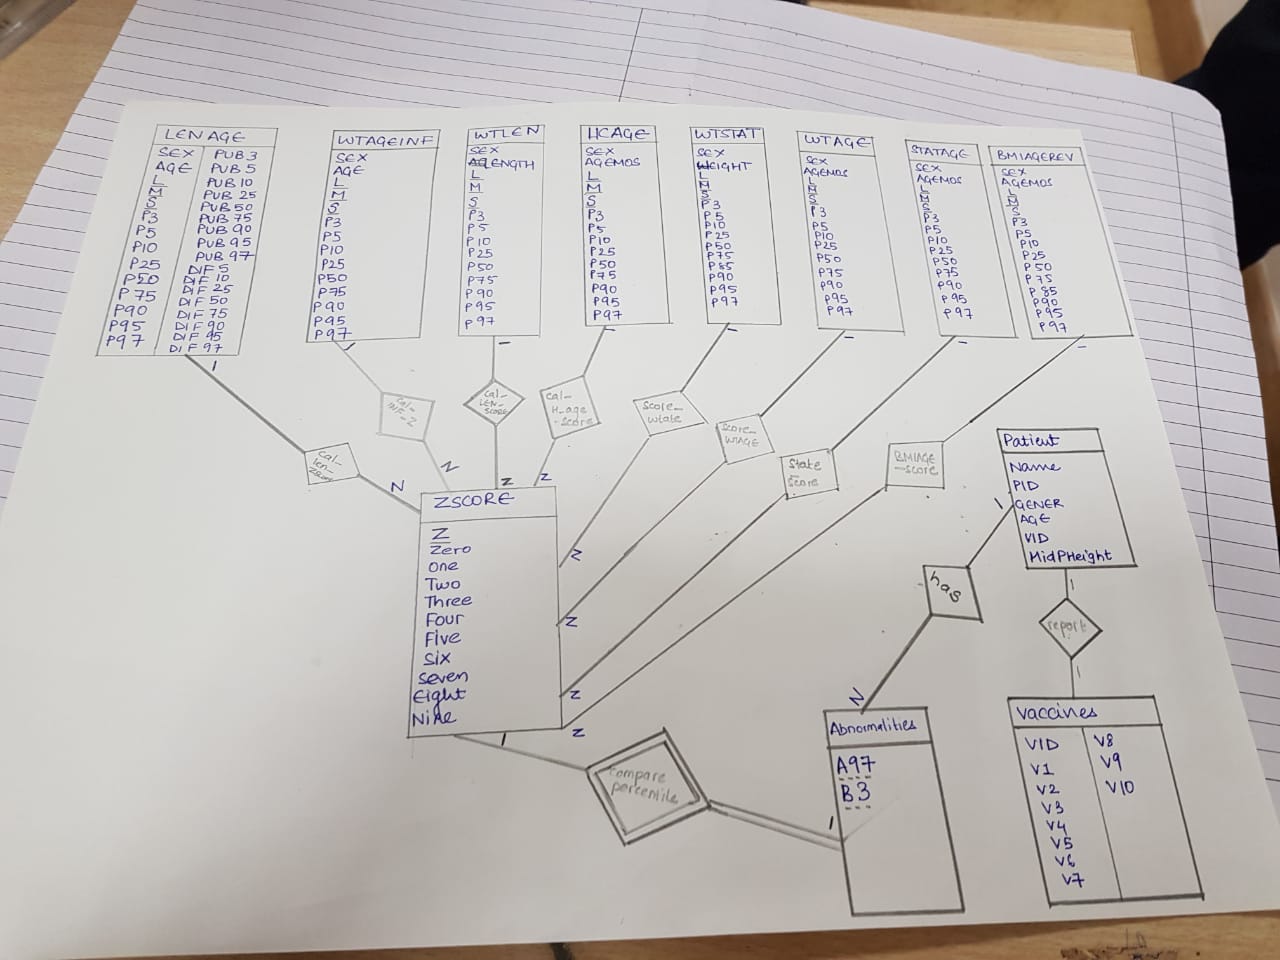 LENAGE
SEX
AGE
L
M
S
P3
P5
P10
P25
P50
P75
P90
P95
P97
PUB 3
PUB 5
PUB 10
PUB 25
PUB 50
PUB 75
PUB 90
PUB 95
PUB 97
DIF 5
DIF 10
DIF 25
DIF 50
DIF 75
DIF 90
DIF 95
DIF 97
WTAGEINF
SEX
AGE
L
M
S
P3
P5
P10
P25
P50
P75
P90
P95
P97
WTLEN
SEX
LENGTH
L
M
S
P3
P5
P10
P25
P50
P75
P90
P95
P97
HCAGE
SEX
AGEMOS
L
M
S
P3
P5
P10
P25
P50
P75
P90
P95
P97
WTSTAT
SEX
WEIGHT
L
M
S
P3
P5
P10
P25
P50
P75
P85
P90
P95
P97
WTAGE
SEX
AGEMOS
L
M
S
P3
P5
P10
P25
P50
P75
P90
P95
P97
STATAGE
SEX
AGEMOS
L
M
S
P3
P5
P10
P25
P50
P75
P90
P95
P97
BMIAGEREV
SEX
AGEMOS
L
M
S
P3
P5
P10
P25
P50
P75
P85
P90
P95
P97
1
1
1
1
1
1
1
1
Cal_
len_
zscore
Cal_
INF_Z
Cal_
LEN_
SCORE
Cal_
H_age
_score
Score_
wtate
Score_
WTAGE
State
Score
BMIAGE
_score
N
N
N
N
N
N
N
N
ZSCORE
Z
Zero
One
Two
Three
Four
Five
Six
Seven
Eight
Nine
1
Compare
percentile
1
Patient
Name
PID
GENER
AGE
VID
MidPHeight
1
has
N
1
report
1
Abnormalities
A97
B3
vaccines
VID
V1
V2
V3
V4
V5
V6
V7
V8
V9
V10